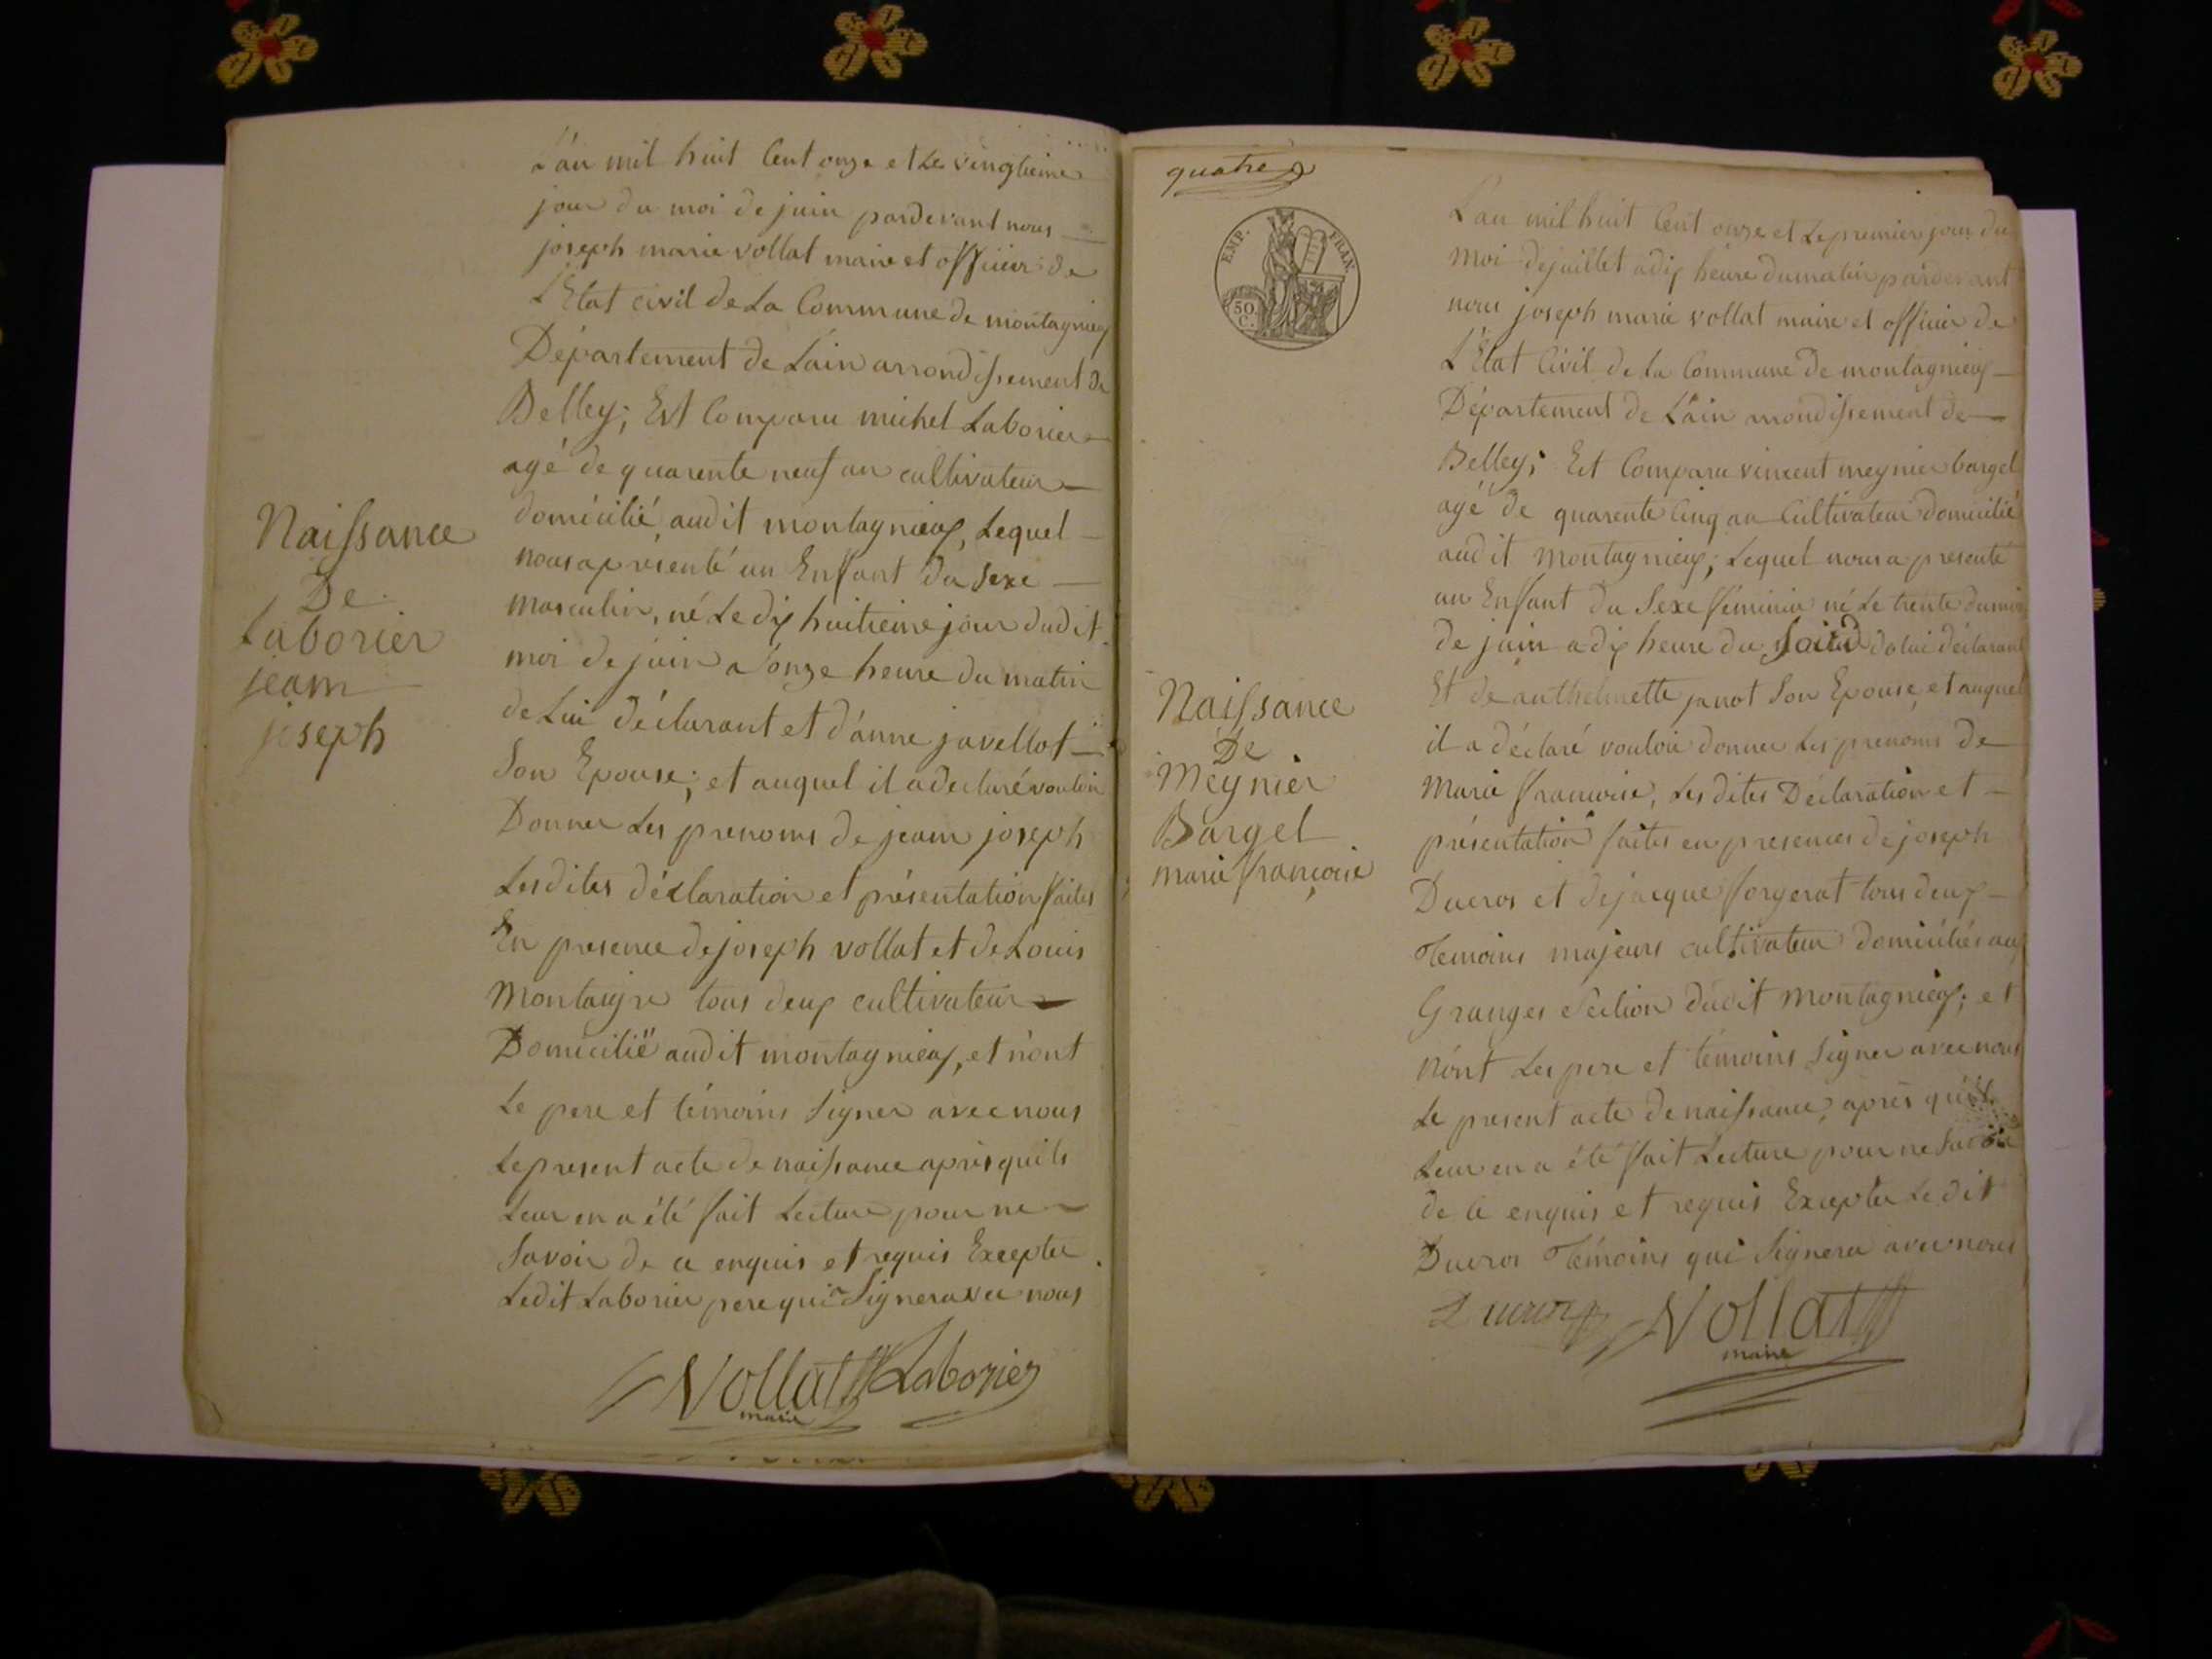 L'an mil huit Cent onze et Le vingtieme
jour du moi de juin pardevant nous
joseph marie vollat maire et officier de
L'Etat civil de La Commune de montagnieux
Département de Lain arrondissement de
Belley; Est Comparu michel Laborier
agé de quarente neuf an cultivateur
domicilié audit montagnieux, Lequel
nous a présenté un Enfant du Sexe
masculin, né Le dix huitieme jour dudit
moi de juin a onze heure du matin
de Lui déclarant et d'anne javellot
Son Epouse; et auquel il a declaré vouloir
Donner Les prenoms de jean joseph
Lesdites déclaration et présentation faites
En presence de joseph vollat et de Louis
Montagne tous deux cultivateur
Domicilié audit montagnieux, et n'ont
Le pere et témoins Signer avec nous
Le present acte de naissance après quils
Leur en a été fait Lecture pour ne
Savoir de ce enquis et requis Excepter
Ledit Laborier pere qui Signera avec nous
Naissance
De
Laborier
jean
joseph
Vollat Laborier
maire
quatre
EMP. FRAN.
50
C.
L'an mil huit Cent onze et Le premier jour du
moi de juillet a dix heure du matin pardevant
nous joseph marie vollat maire et officier de
L'Etat Civil de La Commune de montagnieux
Département de L'ain arrondissement de
Belley; Est Comparu vincent meynier bargel
agé de quarente Cinq an Cultivateur domicilié
audit montagnieux; Lequel nous a presenté
un Enfant du Sexe féminin né Le trente du moi
de juin a dix heure du Soir de lui déclarant
Et de anthelmette janot Son Epouse, et auquel
il a déclaré vouloir donner Les prenoms de
Marie francoise, Lesdites Déclaration et
présentation faites en presences de joseph
Ducros et de jacque forgerat tous deux
Temoins majeurs cultivateur domiciliés aux
Granges Section dudit montagnieux; et
n'ont Les pere et témoins Signer avec nous
Le present acte de naissance, après qu'il
Leur en a été fait Lecture pour ne Savoir
de ce enquis et requis Excepter Ledit
Ducros Témoins qui Signera avec nous
Naissance
De
Meynier
Bargel
marie françoise
Ducros Vollat
maire